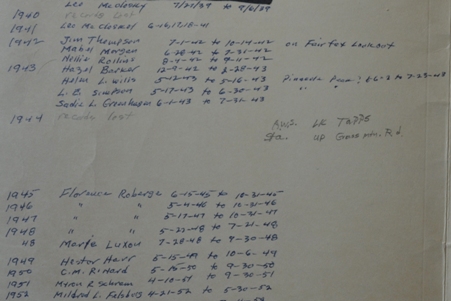 Leo McCloskey 7/20/39 to 9/6/39
1940 records lost
1941 Leo McCloskey 6-16,17,18-41
1942 Jim Thompson 7-1-42 to 10-14-42 on Fairfax Lookout
Mabel Morgan 6-28-42 to 7-31-42
Nellie Rollins 8-9-42 to 9-11-42
1943 Hazel Barker 12-9-42 to 2-28-43
Helen L. Wills 5-12-43 to 5-16-43
L. B. Simpson 5-17-43 to 6-30-43
Sadie L. 6-1-43 to 7-31-43
1944 records lost
Sta. up Green mtn. Rd.
1945 Florence Roberge 6-15-45 to 10-31-45
1946 " " 5-4-46 to 12-31-46
1947 " " 5-17-47 to 10-31-47
1948 " " 5-23-48 to 7-21-48
48 Marje Luxon 7-28-48 to 9-30-48
1949 Hester Harr 5-15-49 to 10-6-49
1950 C.M. Rinard 5-15-50 to 9-30-50
1951 Myron R Schram 4-10-51 to 9-30-51
1952 Mildred L. 4-21-52 to 5-30-52